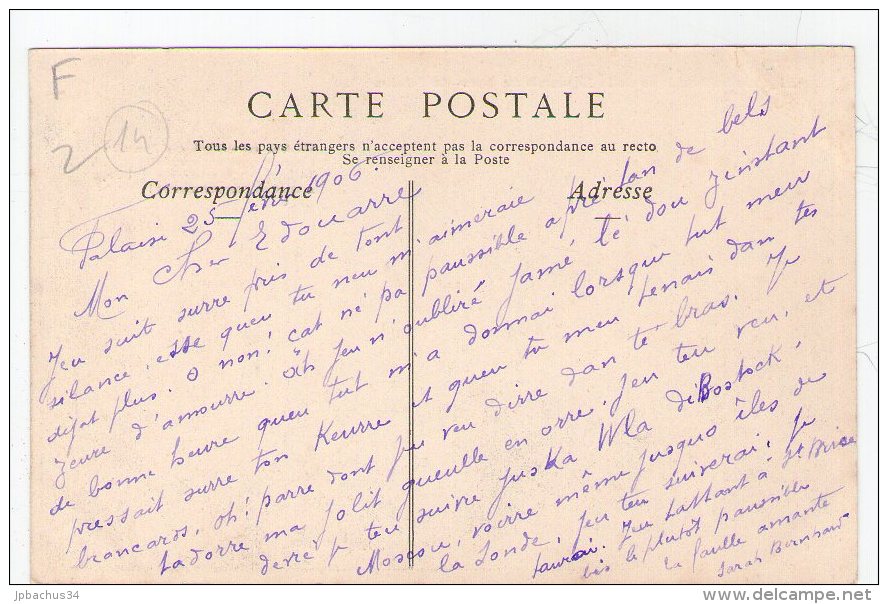 F
2
14
CARTE POSTALE
Tous les pays étrangers n'acceptent pas la correspondance au recto
Se renseigner à la Poste
Correspondance
Adresse
Palaise 25 1906.
Mon Cher Edouarre
Jeu suit surre pris de tout
silance, esse queu tu neu m'aimeraie
déjat plus. O non! cat né pa paussible apré tan de bels
zeure d'amourre. Ah jeu n'oubliré jamé, té dou zinstant
de bonne heure queu tut m'a donnai lorsque tut meu
pressait surre ton Keurre et queu tu meu tenais dan tes
brancards, oh! parre dont jeu veu dirre dan te bras. Je
tadorre ma jolit gueulle en orre. Jeu teu veu, et
derré teu suivre jusKa Wla diBostock,
Moscou, voirre même jusquo îles de
la Sonde, jeu teu suiverai, je
taurai. Jeu tattant à St
bis le plutôt paussible
ta faulle amante
Sarah Bernhard
jpbachus34
delcampe.net